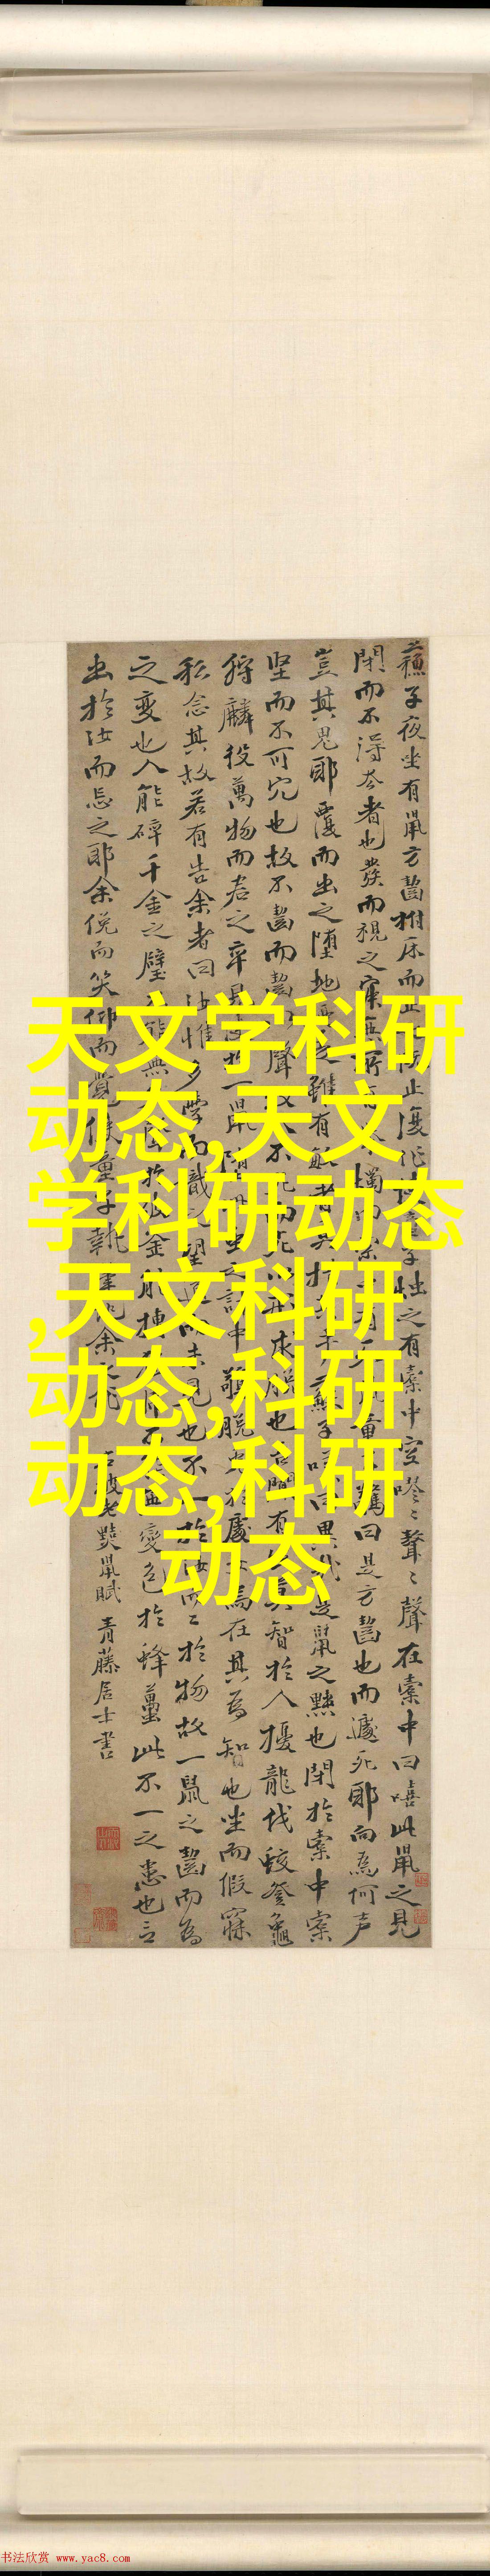 蘇子夜坐有鼠方齧拊床而止之既止復作童子燭之有橐中空嘐嘐聱聱聲在橐中曰嘻此鼠之見
閉而不得去者也發而視之寂無所童驚曰是方齧也而遽死耶向為何声
豈其鬼耶覆而出之墮地雖有敏者蘇子曰異哉是鼠之黠也閉於橐中橐
堅而不可穴也故不齧而齧聲不死而死以形求脫也吾聞有莫智於人擾龍伐蛟登龜
狩麟役萬物而君之卒見使於一鼠墮此蟲之計中驚脫兔於處女烏在其為智也坐而假寐
私念其故若有告余者曰汝惟多學而識之望道而未見也不一於汝而二於物故一鼠之齧而為
之變也人能碎千金之璧不能無聲於破釜能搏變色於蜂蠆此不一之患也言
出於汝而忘之耶余俛而笑仰而覺使童子執筆記余之 東坡老黠鼠賦 青藤居士書
天文学科研
动态,天文
学科研动态
,天文科研
动态,科研
动态,科研
动态
书法欣赏 www.yac8.com